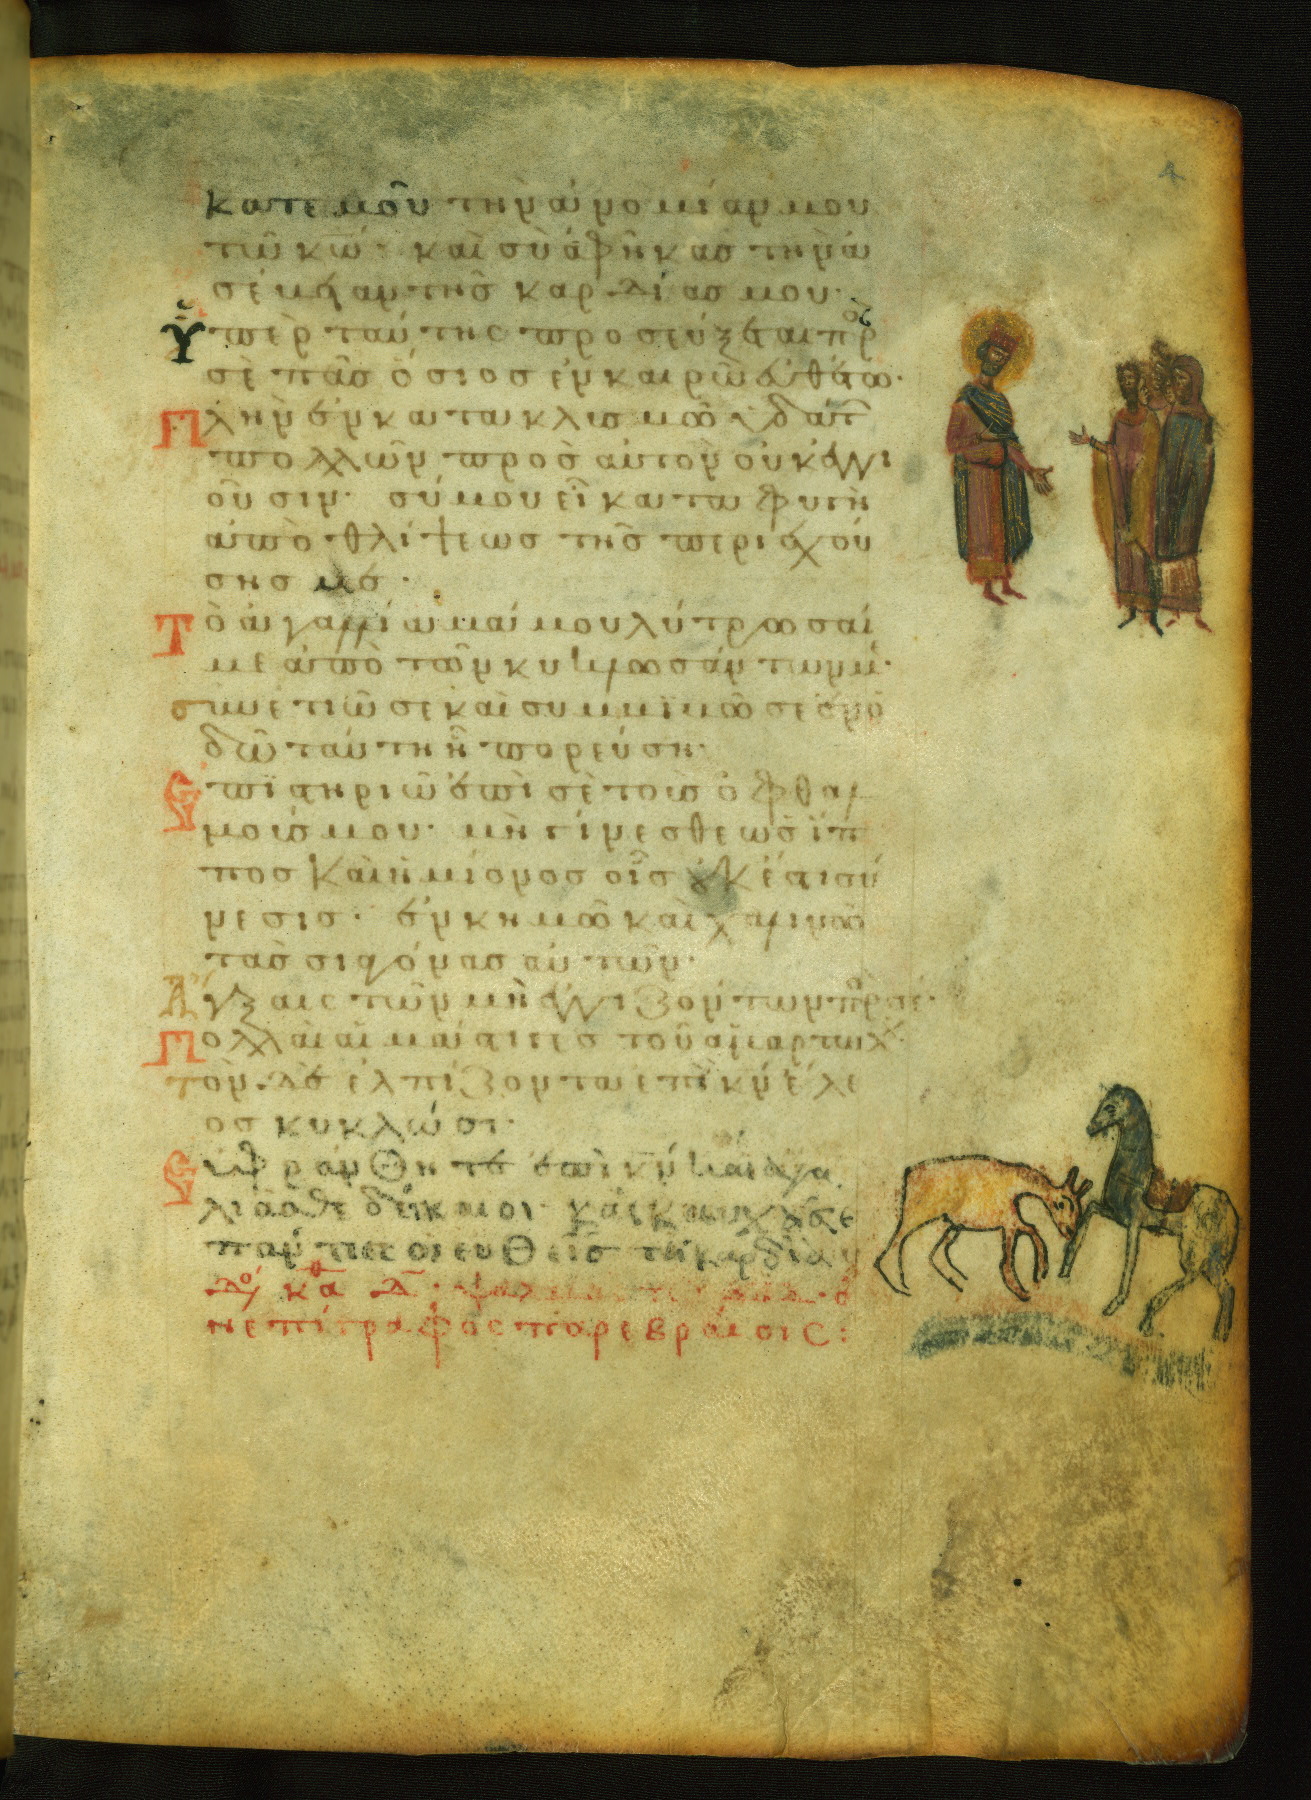 4
κατεμοῦ τὴν ἀνομίαν μου
τῶ κω· καὶ σὺ ἀφῆκας τὴν ἀ
σέβειαν τῆς καρδίας μου·
Ὑπὲρ ταύτης προσεύξεται πρὸς
σὲ πᾶς ὅσιος ἐν καιρῶ εὐθέτω·
Πλὴν ἐν κατακλυσμῶ ὑδάτ
πολλῶν πρὸς αὐτὸν οὐκ ἐγγι
οῦσιν· σύ μου εἶ καταφυγὴ
ἀπὸ θλίψεως τῆς περιεχού
σης με·
Τὸ ἀγαλλίαμά μου λύτρωσαί
με ἀπὸ τῶν κυκλωσάντων με·
συνετιῶ σε καὶ συμβιβῶ σε ἐν ὁ
δῶ ταύτη ἧ πορεύση·
Ἐπιστηριῶ ἐπὶ σὲ τοὺς ὀφθαλ
μούς μου· μὴ γίνεσθε ὡς ἵπ
πος καὶ ἡμίονος οἷς οὐκ ἔστι σύ
νεσις· ἐν κημῶ καὶ χαλινῶ
τὰς σιαγόνας αὐτῶν
ἄγξαις τῶν μὴ ἐγγιζόντων πρὸς σέ·
Πολλαὶ αἱ μάστιγες τοῦ ἁμαρτωλοῦ·
τὸν δὲ ἐλπίζοντα ἐπὶ κν ἔλε
ος κυκλώσει·
Εὐφράνθητε ἐπὶ κν καὶ ἀγα
λιᾶσθε δίκαιοι· καὶ καυχᾶσθε
πάντες οἱ εὐθεῖς τῆ καρδία
ἀνεπίγραφος παρ εβραίοις: